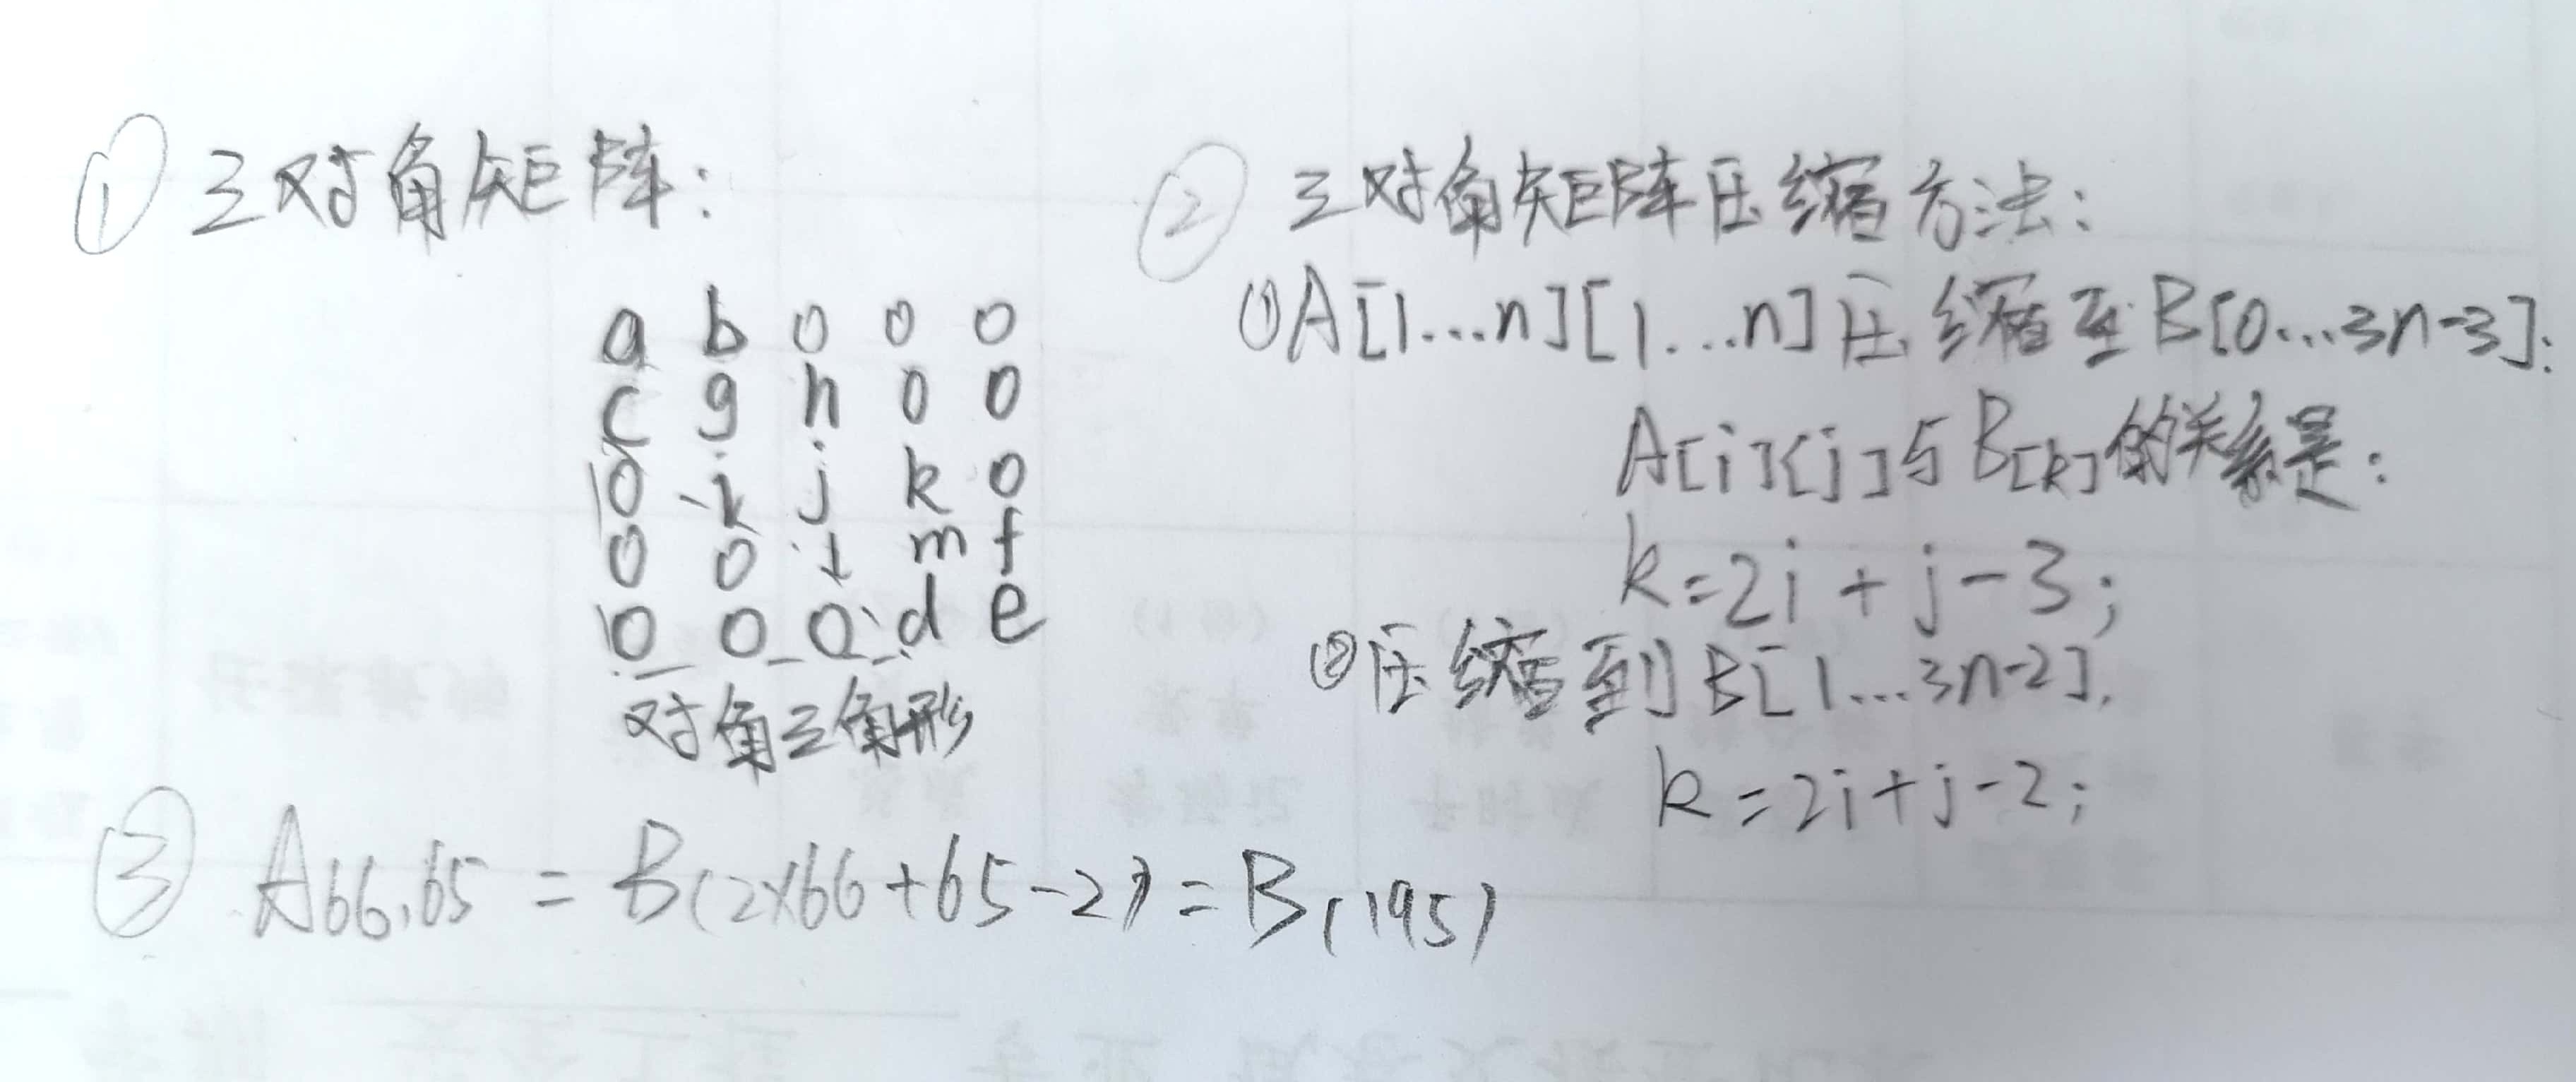 ① 三对角矩阵:
a b 0 0 0
c g h 0 0
0 i j k 0
0 0 l m f
0 0 0 d e
对角三角形
② 三对角矩阵压缩方法:
①A[1...n][1...n]压缩至B[0...3n-3]:
A[i][j]与B[k]的关系是:
k=2i+j-3;
②压缩到B[1...3n-2].
k=2i+j-2;
③ A66,65 = B(2×66+65-2) = B(195)